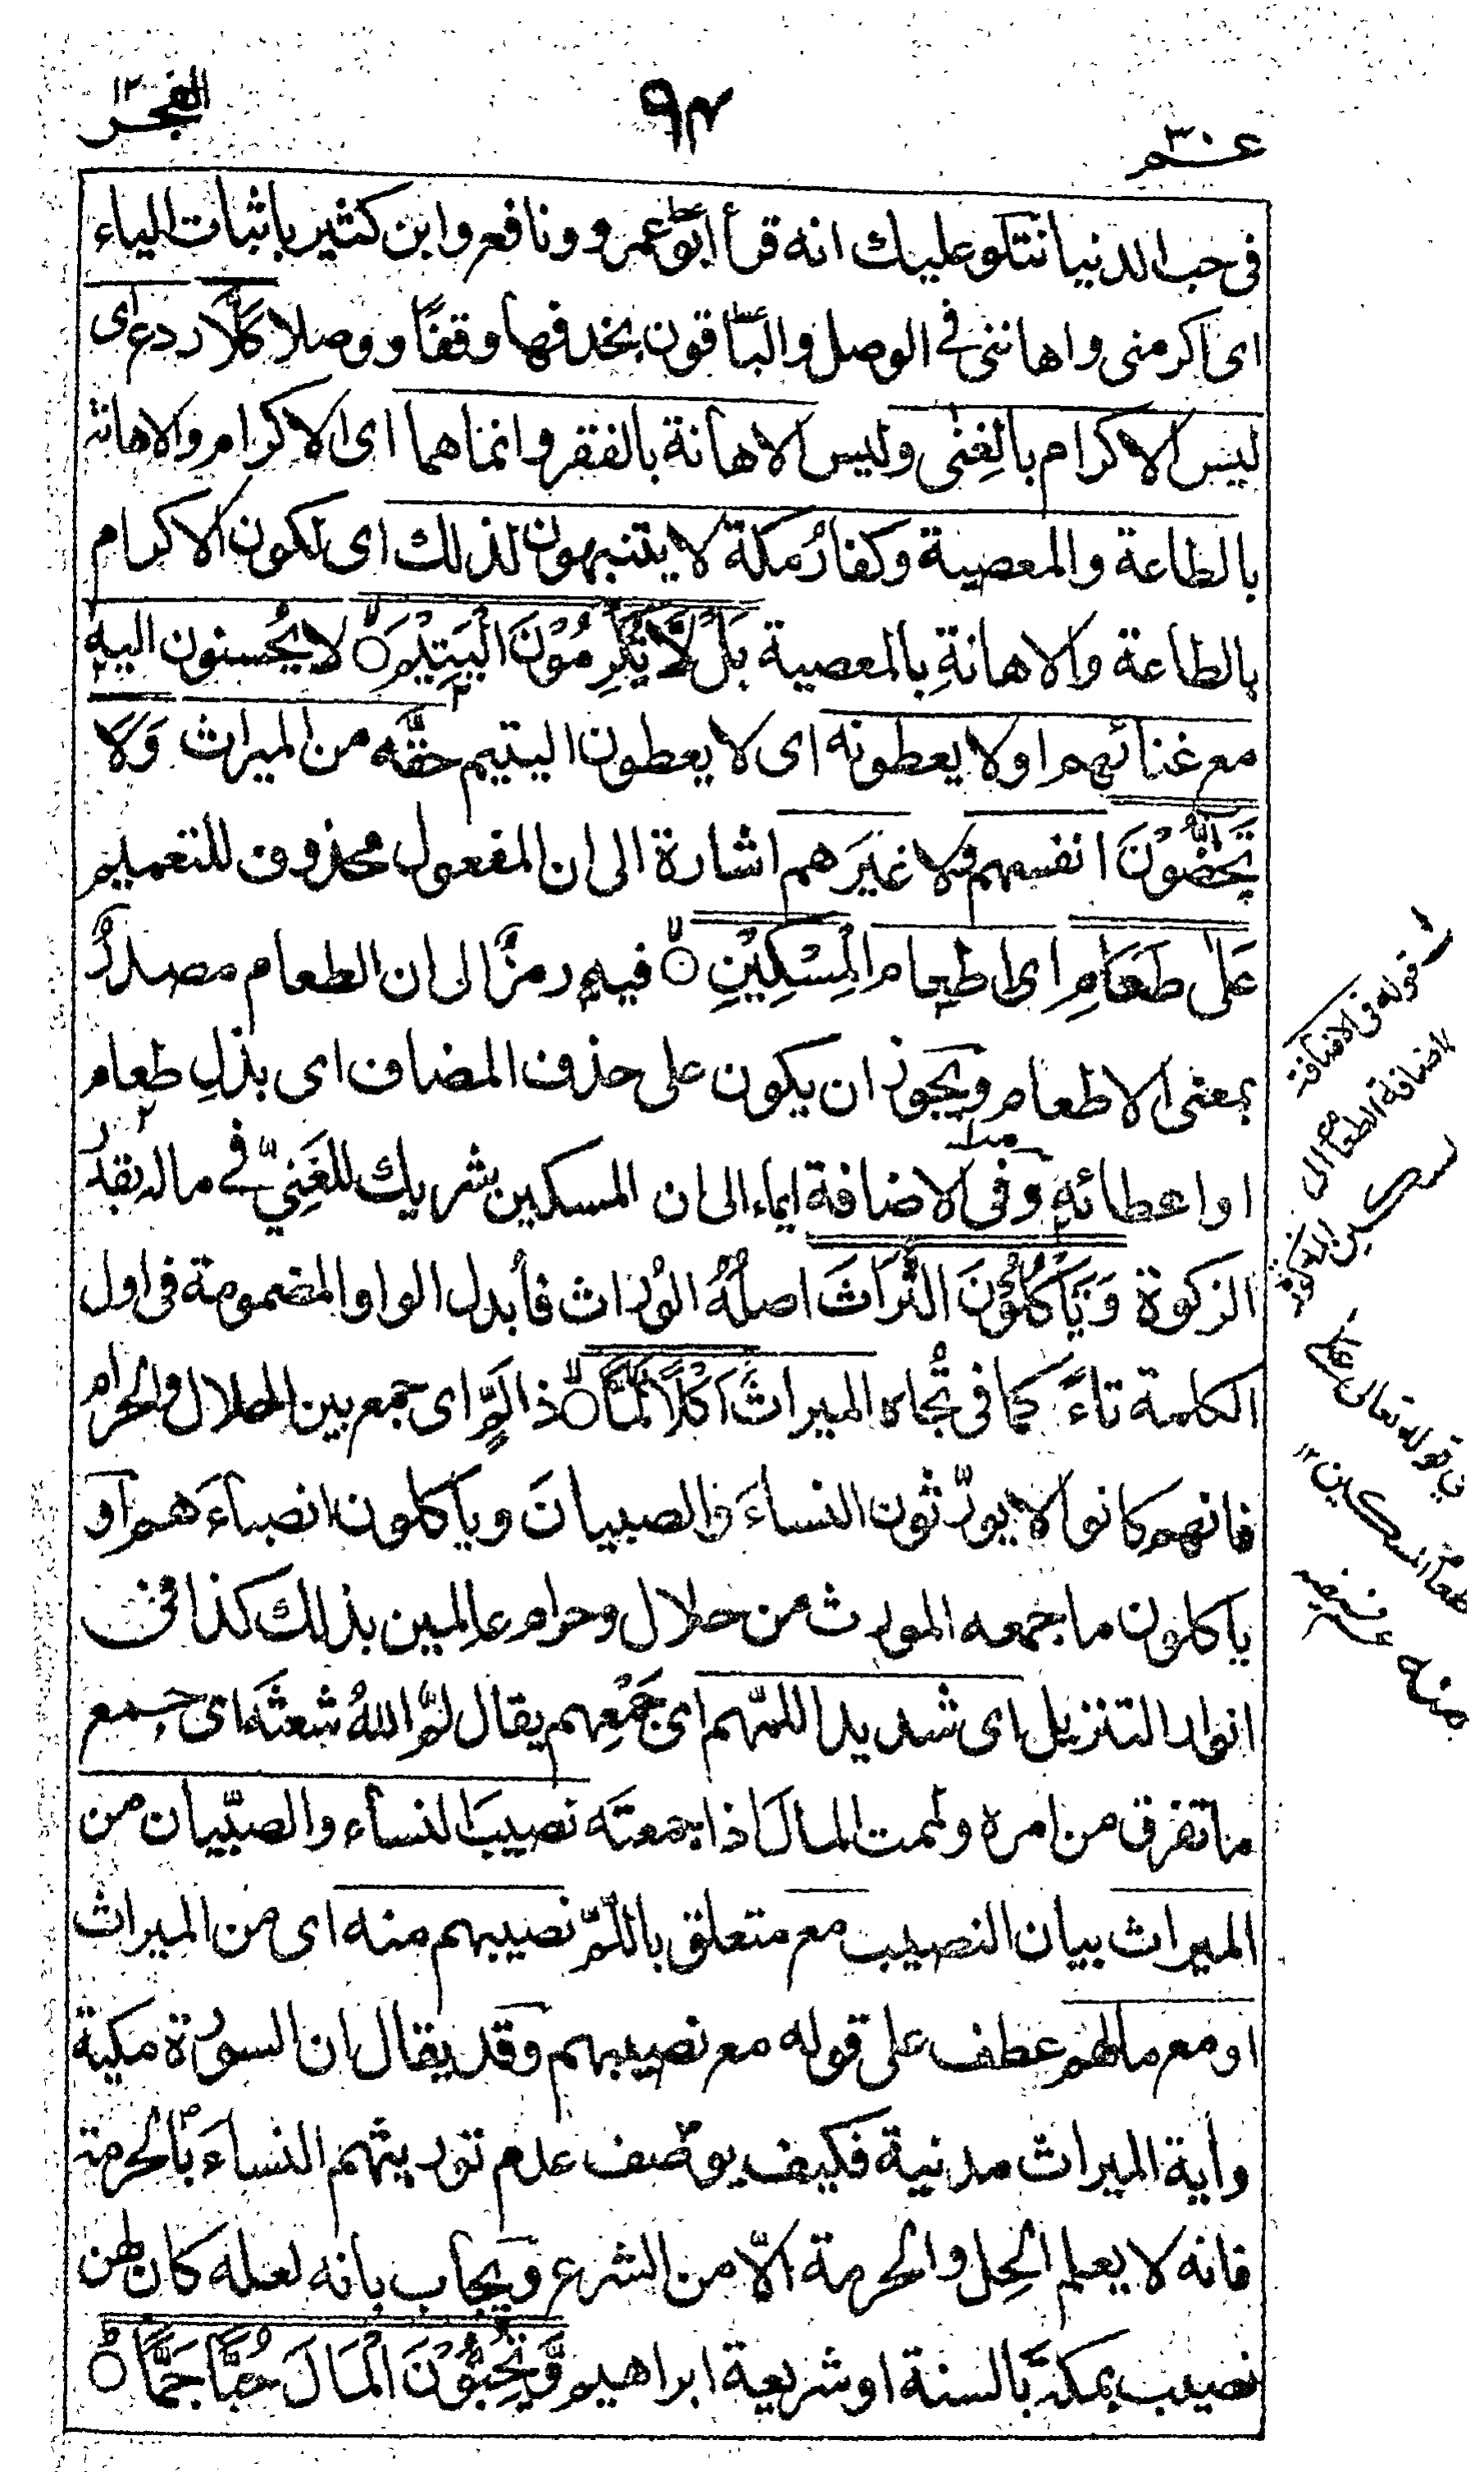 عـم ٣٠
٩٤
الفجر ١٢
فى حب الدنيا نتلو عليك انه قرأ ابو عمرو ونافع وابن كثير باثبات الياء
اى اكرمنى واهاننى فى الوصل والباقون بحذفها وقفًا ووصلا كَلَّا ردع اى
ليس الاكرام بالغِنٰى وليس الاهانة بالفقر وانما هما اى الاكرام والاهانة
بالطاعة والمعصية وكفارُ مكة لا يتنبهون لذلك اى لكون الاكرام
بالطاعة والاهانةِ بالمعصية بَلْ لَّا تُكْرِمُوْنَ الْيَتِيْمَ لا يُحسنون اليه
مع غنائهم او لا يعطونه اى لا يعطون اليتيم حقَّه من الميراث وَلَا
تَحٰٓضُّوْنَ انفسهم ولا غيرَهم اشارة الى ان المفعول محذوف للتعميم
عَلٰى طَعَامِ اى اطعام الْمِسْكِيْنِ فيه رمزٌ الى ان الطعام مصدرٌ
بمعنى الاطعام ويجوز ان يكون على حذف المضاف اى بذلِ طعام
او اعطائه وفى الاضافة ايماء الى ان المسكين شريك للغَنِيّ فى ماله بقدر
الزكوة وَتَاْكُلُوْنَ التُّرَاثَ اصلُهُ الوُراث فأبدل الواو المضمومة فى اول
الكلمة تاءً كما فى تُجاه الميراثَ اَكْلًا لَّمًّا ذا لَمٍّ اى جمع بين الحلال والحرام
فانهم كانوا لا يورّثون النساءَ والصبيانَ وياكلون انصباءَهم او
ياكلون ما جمعه المورث من حلال وحرام عالمين بذلك كذا فى
انوار التنزيل اى شديد اللمّهم اى جَمْعِهم يقال لمّ اللهُ شعثَه اى جمع
ما تفرق من امره ولممت المال اذا جمعتَه نصيبَ النساء والصبيان من
الميراث بيان النصيب مع متعلق باللَّمِّ نصيبهم منه اى من الميراث
او مع مالهم عطف على قوله مع نصيبهم وقد يقال ان السورة مكية
وأية الميراث مدنية فكيف يوصف عدم توريثهم النساءَ بالحرمة
فانه لا يعلم الحِل والحرمة الّا من الشرع ويجاب بانه لعله كان لهن
نصيب بمكة بالسنة او شريعة ابراهيم وَّتُحِبُّوْنَ الْمَالَ حُبًّا جَمًّا
قوله فى الاضافة
اضافة الطعام الى
المسكين المذكورة
فى قوله تعالى على
طعام المسكين ١٢
منه